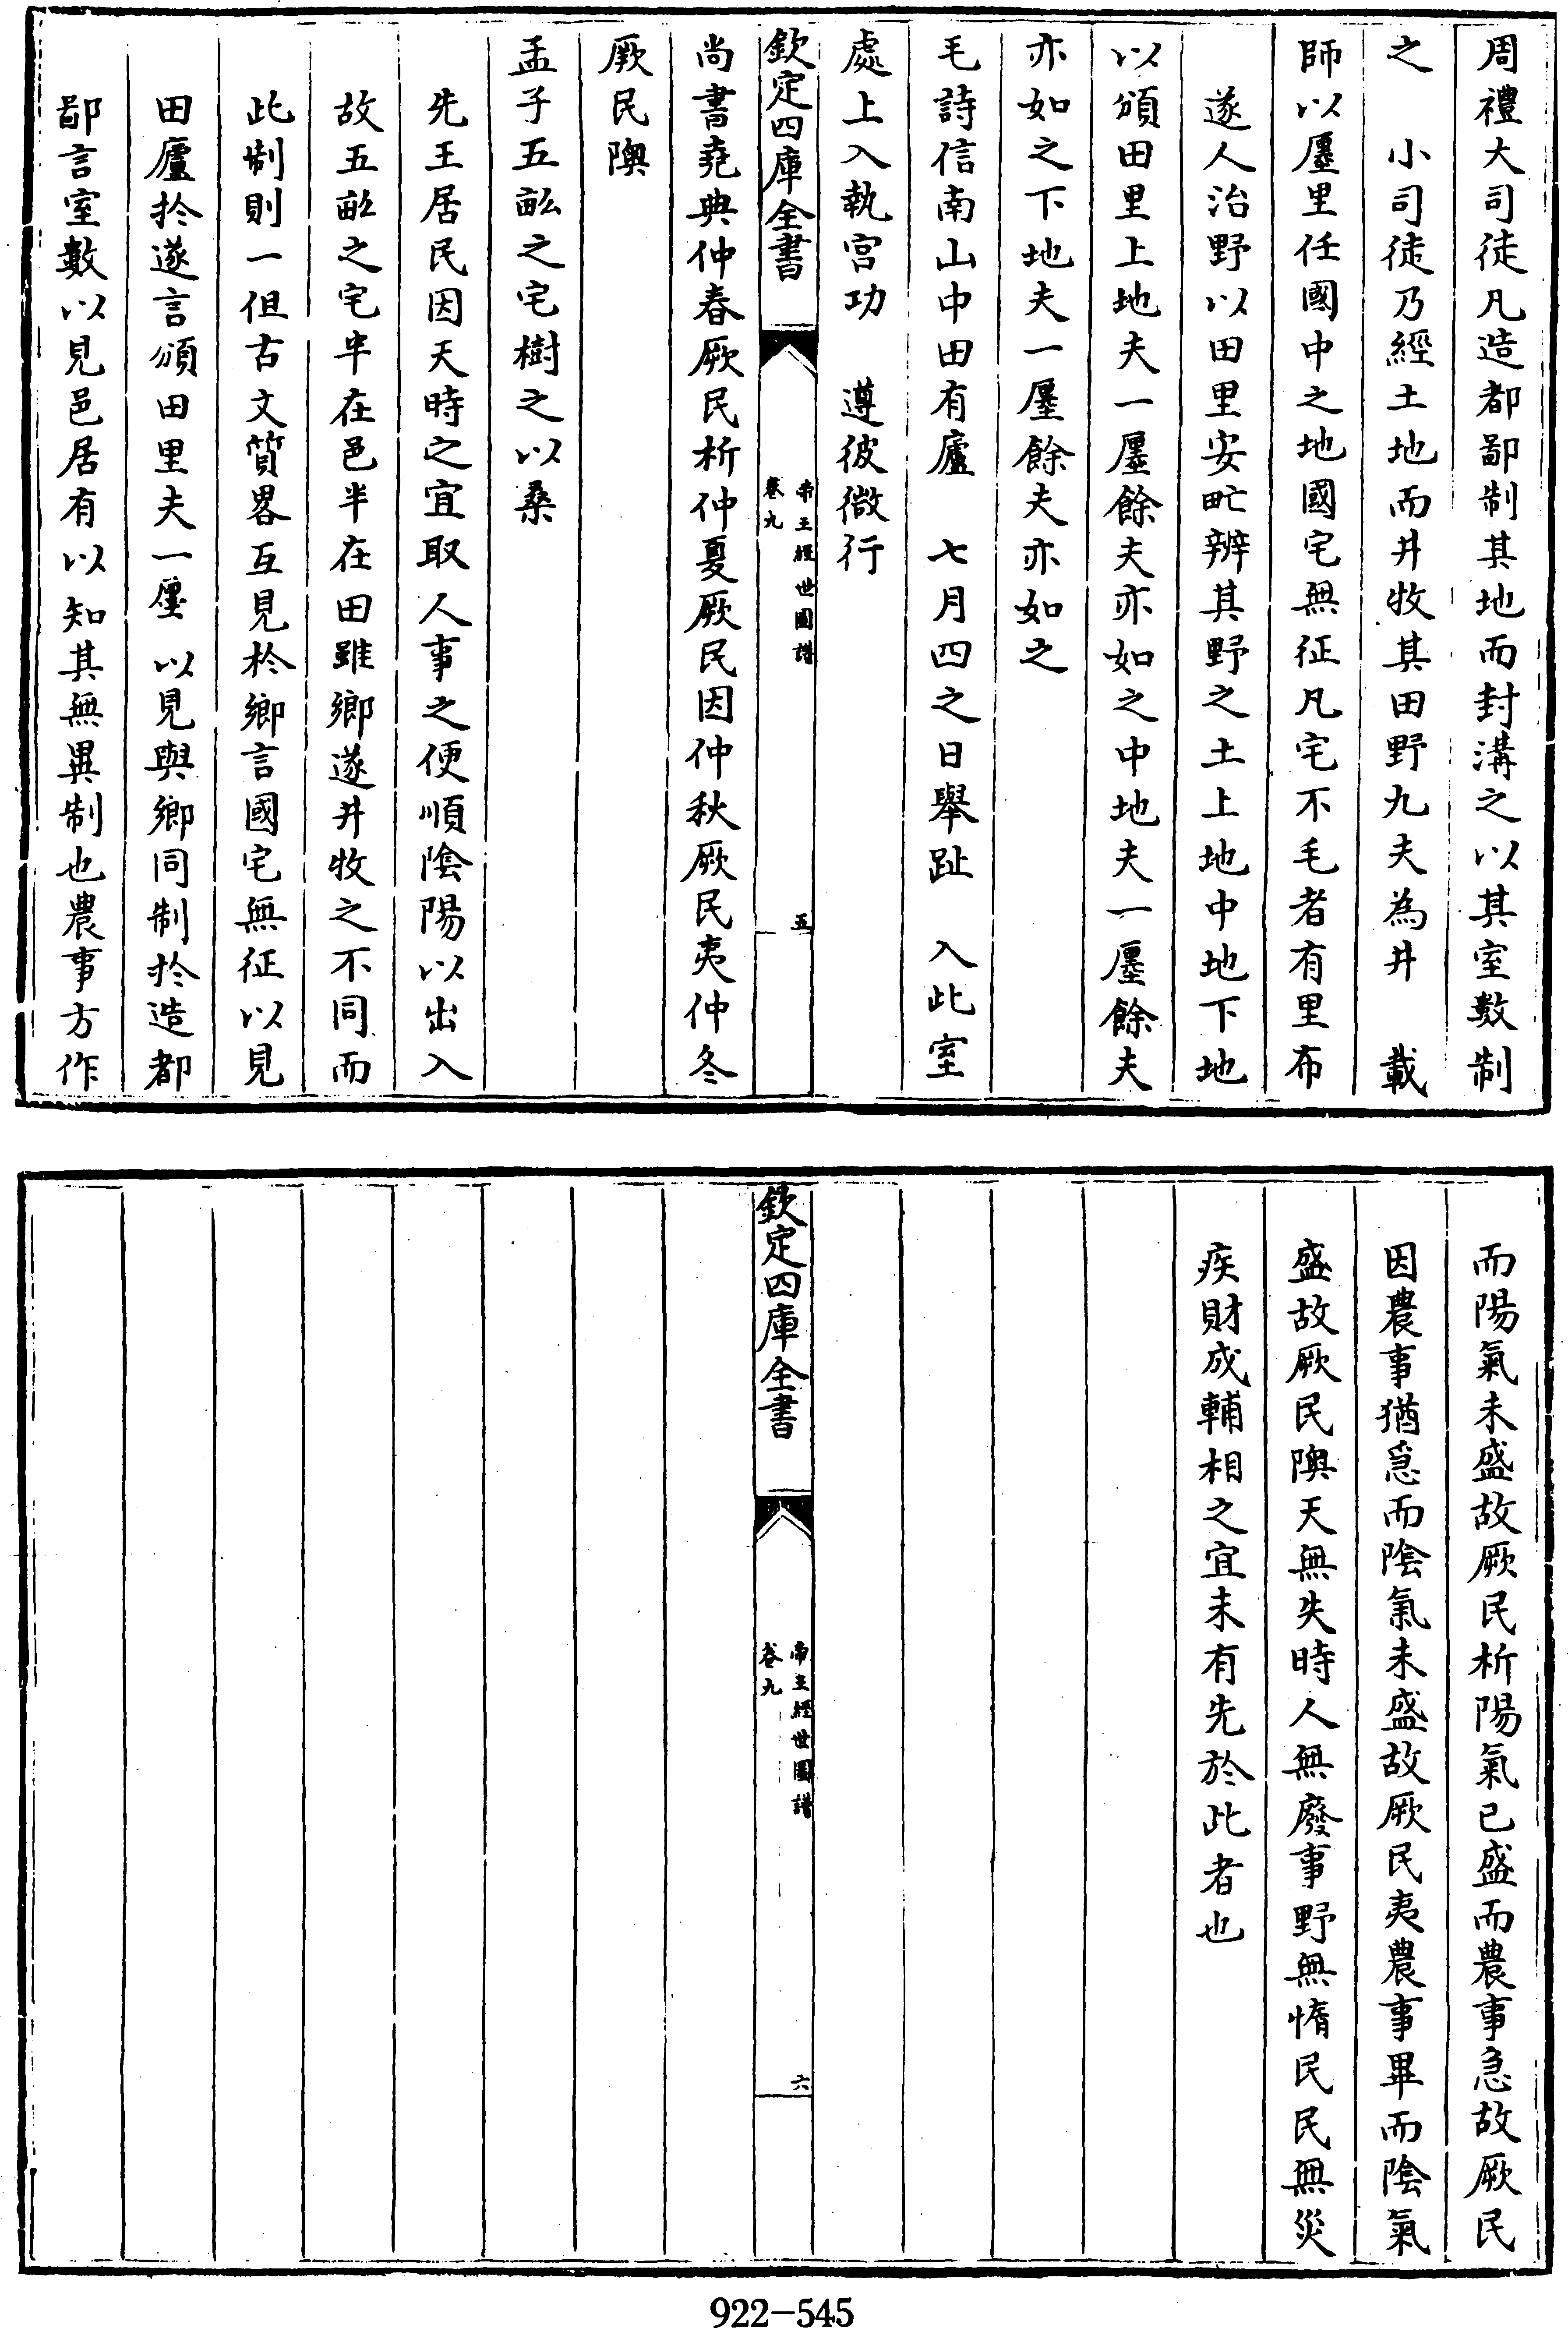 周禮大司徒凡造都鄙制其地而封溝之以其室數制
之　小司徒乃經土地而井牧其田野九夫為井　載
師以廛里任國中之地國宅無征凡宅不毛者有里布
遂人治野以田里安甿辨其野之土上地中地下地
以頒田里上地夫一廛餘夫亦如之中地夫一廛餘夫
亦如之下地夫一廛餘夫亦如之
毛詩信南山中田有廬　七月四之日舉趾　入此室
處上入執宮功　遵彼微行
欽定四庫全書
帝王經世圖譜
卷九
五
尚書堯典仲春厥民析仲夏厥民因仲秋厥民夷仲冬
厥民隩
孟子五畝之宅樹之以桑
先王居民因天時之宜取人事之便順陰陽以出入
故五畝之宅半在邑半在田雖鄉遂井牧之不同而
此制則一但古文質畧互見於鄉言國宅無征以見
田廬於遂言頒田里夫一廛以見與鄉同制於造都
鄙言室數以見邑居有以知其無異制也農事方作
而陽氣未盛故厥民析陽氣已盛而農事急故厥民
因農事猶急而陰氣未盛故厥民夷農事畢而陰氣
盛故厥民隩天無失時人無廢事野無惰民民無災
疾財成輔相之宜未有先於此者也
欽定四庫全書
帝王經世圖譜
卷九
六
922-545